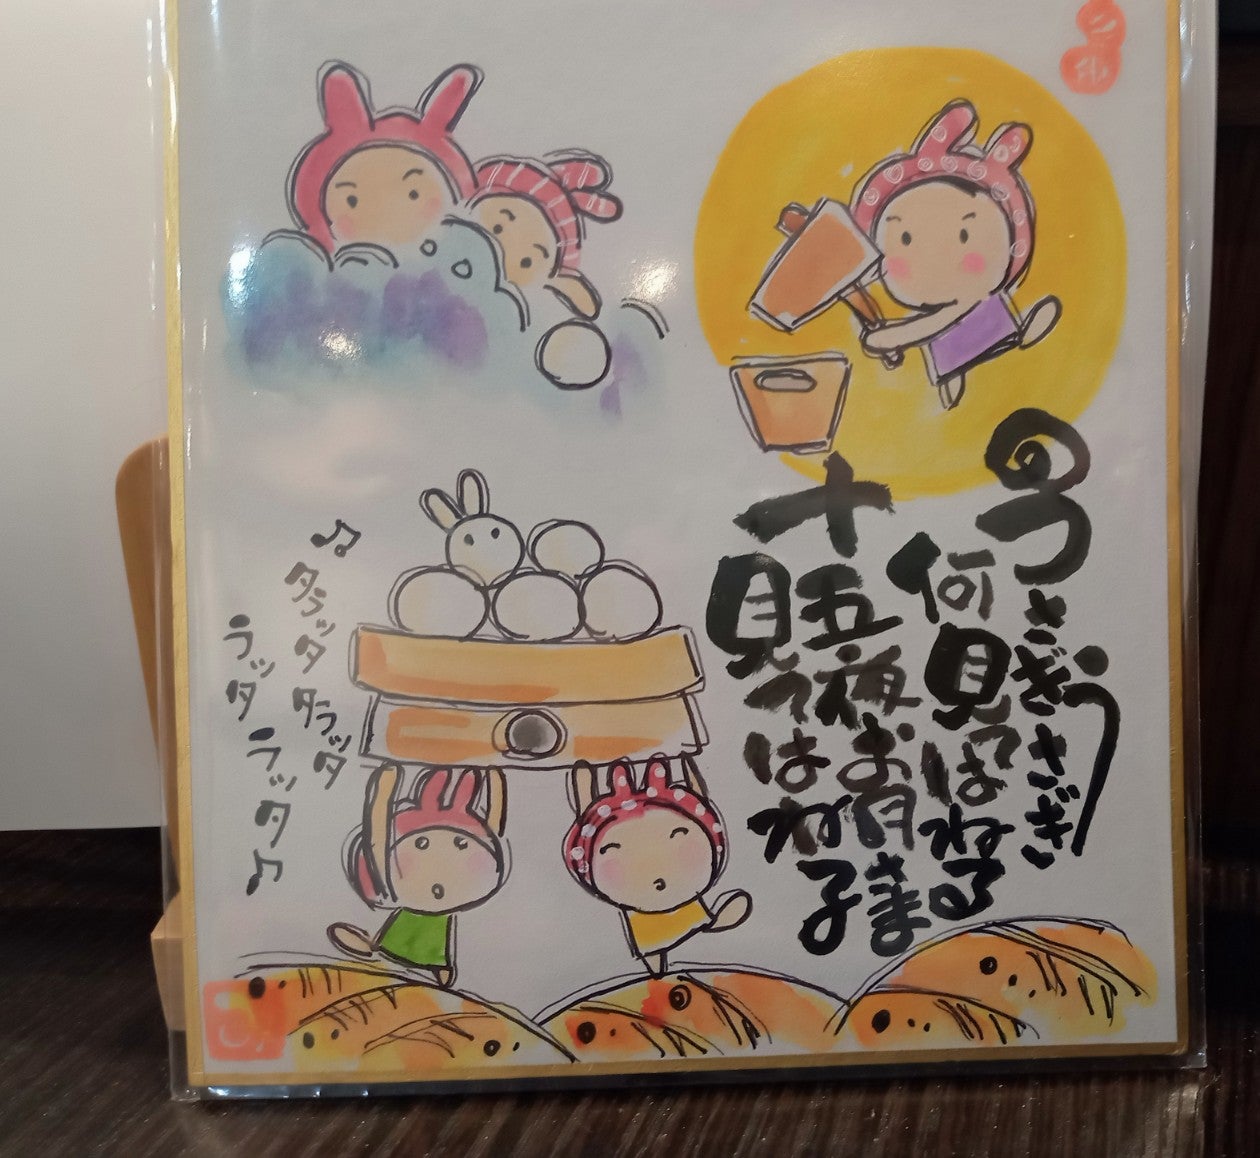 うさぎうさぎ
何見てはねる
十五夜お月さま
見てはねる
♪タラッタタラッタ
ラッタラッタ♪